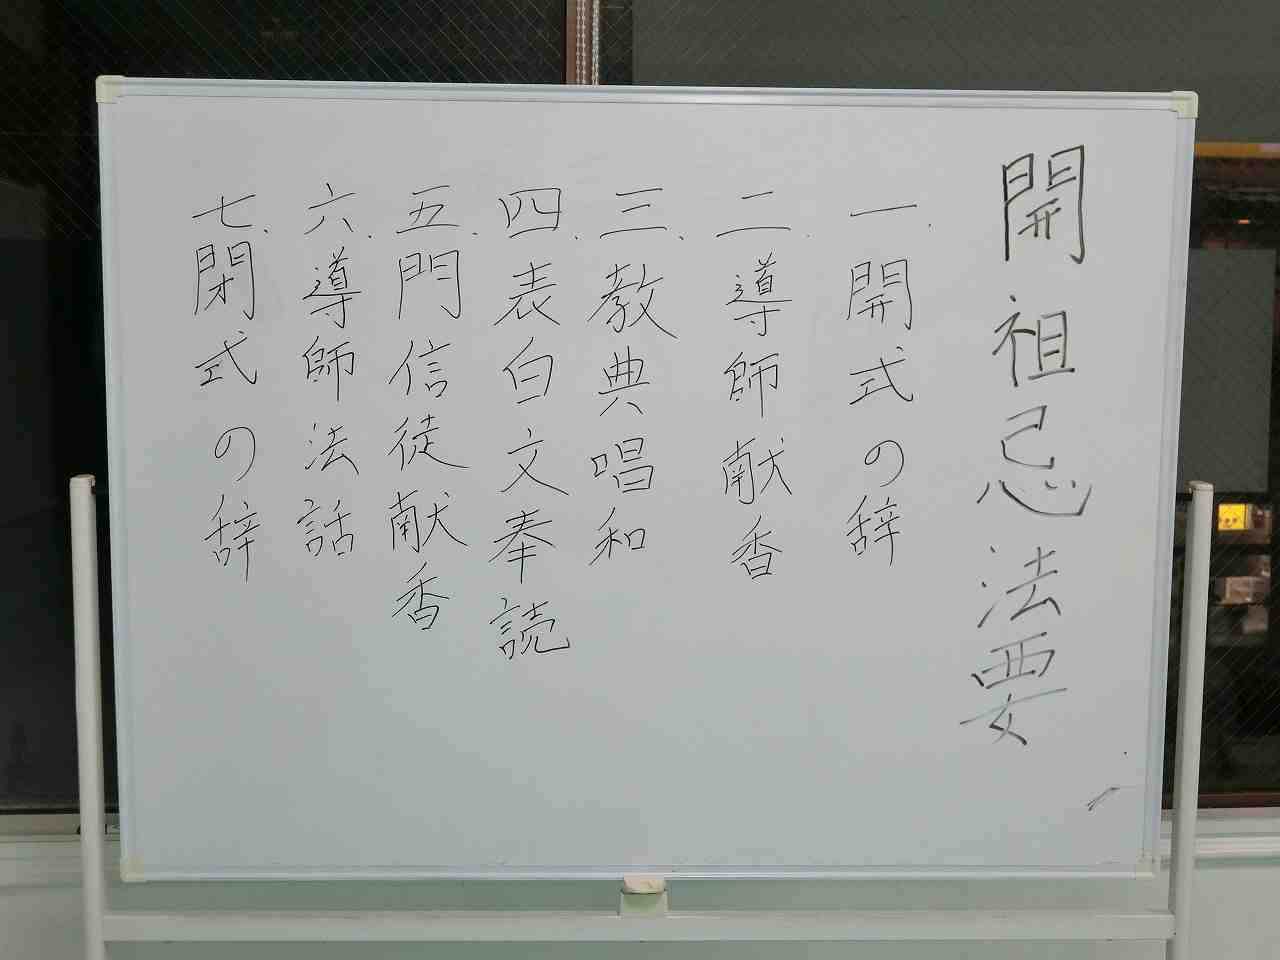 開祖忌法要
一、開式の辞
二、導師献香
三、教典唱和
四、表白文奉読
五、門信徒献香
六、導師法話
七、閉式の辞